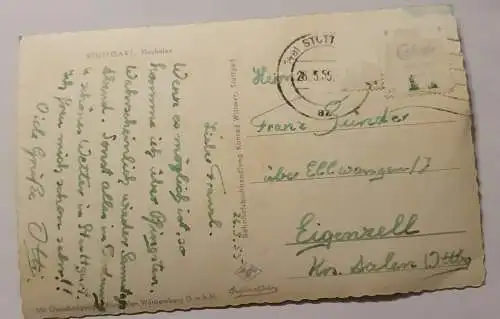 STUTTGART, Hochhaus
Lieber Franz!
Wenn es möglich ist, so
komme ich über Pfingsten.
Wahrscheinlich wieder Samstag
Abend. Sonst alles in Ordnung
u. schönes Wetter in Stuttgart.
Ich freu mich schon sehr!!
Viele Grüße Otto
Bahnhofsbuchhandlung Konrad Wittwer, Stuttgart
STUTT
26.5.55
Herrn
Franz
über Ellwangen/J
Eigenzell
Krs. Aalen Wttbg